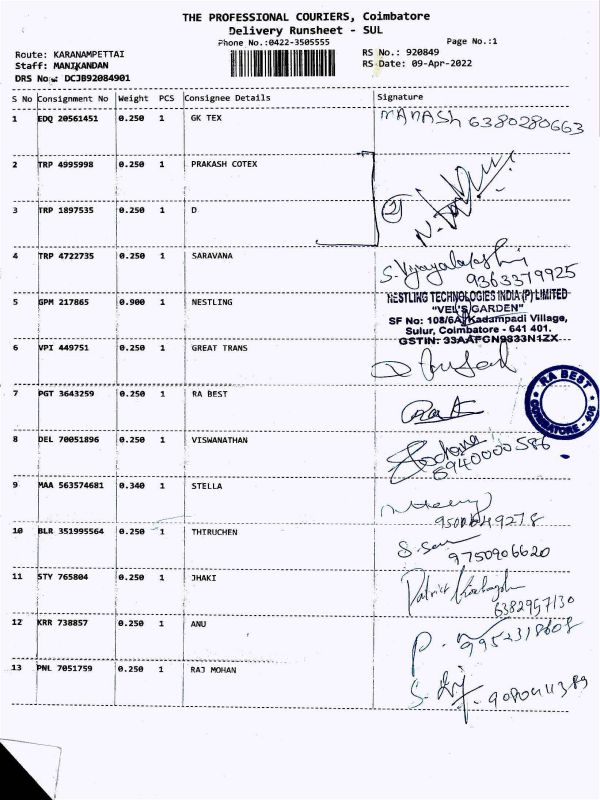 THE PROFESSIONAL COURIERS, Coimbatore
Delivery Runsheet - SUL
Phone No.:0422-3505555
Page No.:1
Route: KARANAMPETTAI
RS No.: 920849
Staff: MANIKANDAN
RS Date: 09-Apr-2022
DRS No: DCJB92084901
S No Consignment No Weight PCS Consignee Details Signature
1 EDQ 20561451 0.250 1 GK TEX MANASh 6380280663
2 TRP 4995998 0.250 1 PRAKASH COTEX
3 TRP 1897535 0.250 1 D 2
4 TRP 4722735 0.250 1 SARAVANA
9363379925
5 GPM 217865 0.900 1 NESTLING NESTLING TECHNOLOGIES INDIA (P) LIMITED
"VEL'S GARDEN"
SF No: 108/6A, Kadampadi Village,
Sulur, Coimbatore - 641 401.
GSTIN: 33AAFCN9833N1ZX
6 VPI 449751 0.250 1 GREAT TRANS
7 PGT 3643259 0.250 1 RA BEST
RA BEST
8 DEL 70051896 0.250 1 VISWANATHAN
9 MAA 563574681 0.340 1 STELLA
10 BLR 351995564 0.250 1 THIRUCHEN
9750906620
11 STY 765804 0.250 1 JHAKI
6382957130
12 KRR 738857 0.250 1 ANU
13 PNL 7051759 0.250 1 RAJ MOHAN